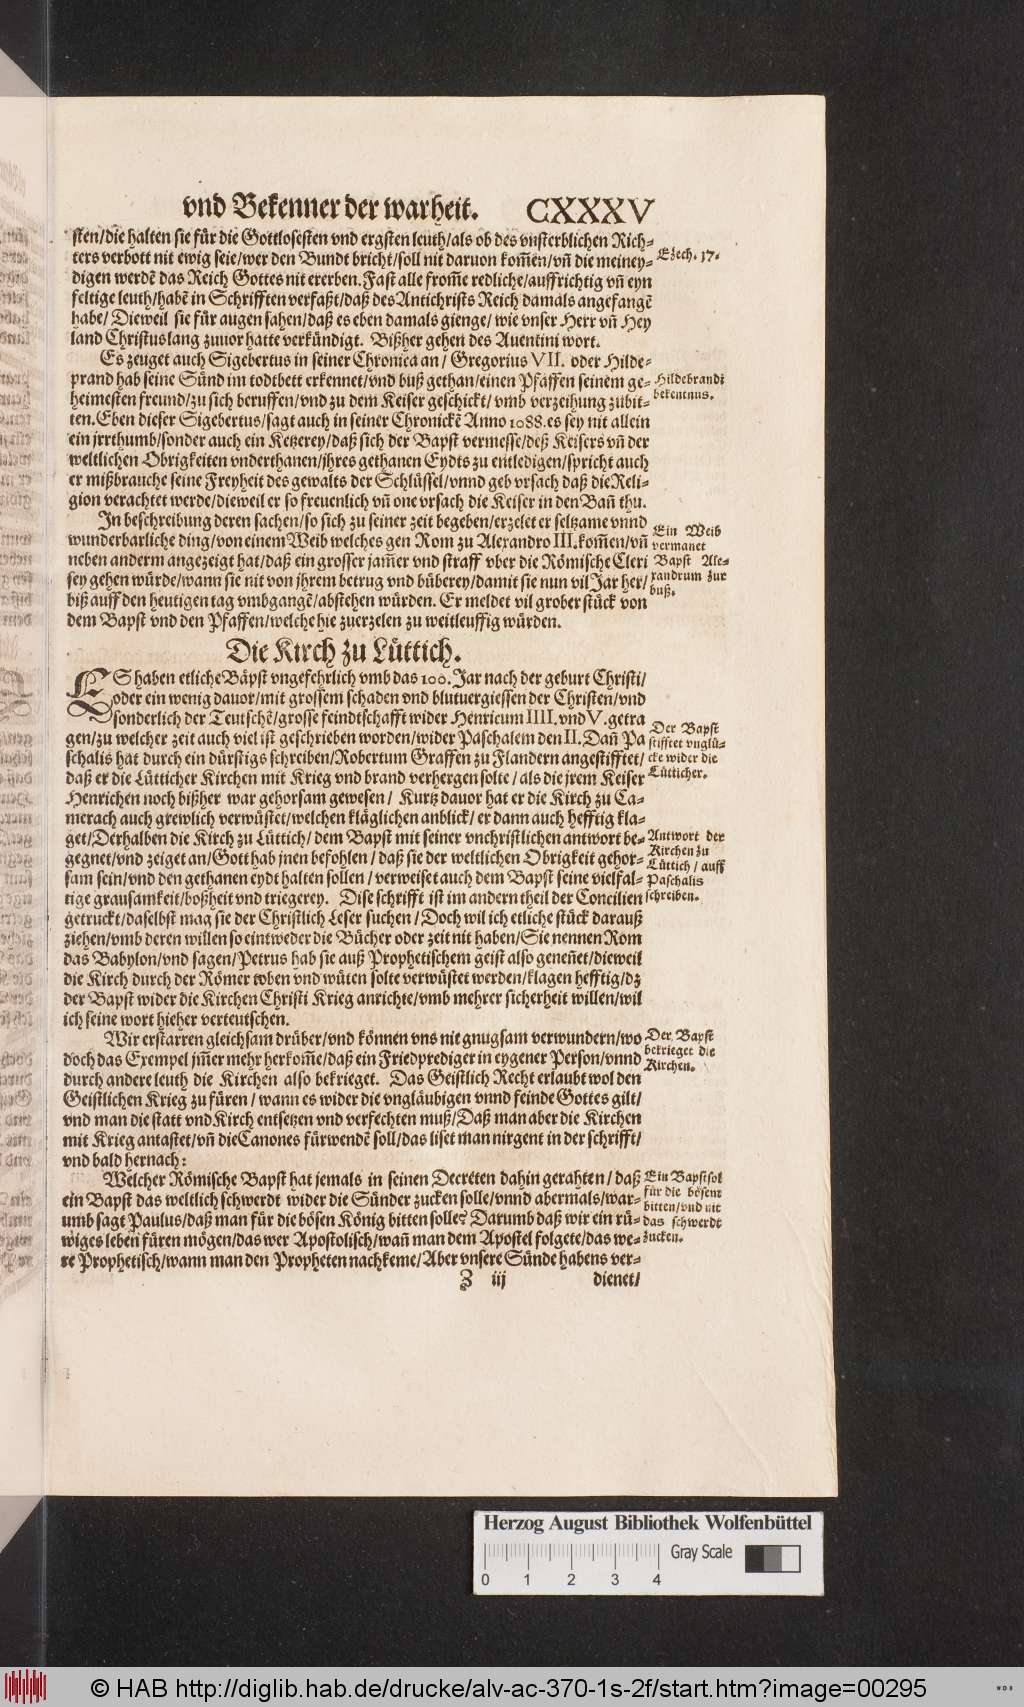 vnd Bekenner der warheit. CXXXV
sten/die halten sie für die Gottlosesten vnd ergsten leuth/als ob des vnsterblichen Rich-
ters verbott nit ewig seie/wer den Bundt bricht/soll nit daruon kom̃en/vñ die meiney-
digen werdẽ das Reich Gottes nit ererben. Fast alle from̃e redliche/auffrichtig vñ eyn
feltige leuth/habẽ in Schrifften verfaßt/daß des Antichrists Reich damals angefangẽ
habe/ Dieweil sie für augen sahen/daß es eben damals gienge/ wie vnser Herr vñ Hey
land Christus lang zuuor hatte verkündigt. Bißher gehen des Auentini wort.
Ezech. 17.
Es zeuget auch Sigebertus in seiner Chronica an/ Gregorius VII. oder Hilde-
prand hab seine Sünd im todtbett erkennet/vnd buß gethan/einen Pfaffen seinem ge-
heimesten freund/zu sich beruffen/vnd zu dem Keiser geschickt/ vmb verzeihung zubit-
ten. Eben dieser Sigebertus/sagt auch in seiner Chronickẽ Anno 1088. es sey nit allein
ein jrrthumb/sonder auch ein Ketzerey/daß sich der Bapst vermesse/deß Keisers vñ der
weltlichen Obrigkeiten vnderthanen/jhres gethanen Eydts zu entledigen/spricht auch
er mißbrauche seine Freyheit des gewalts der Schlüssel/vnnd geb vrsach daß die Reli-
gion verachtet werde/dieweil er so freuenlich vñ one vrsach die Keiser in den Bañ thu.
Hildebrandi
bekentnus.
In beschreibung deren sachen/so sich zu seiner zeit begeben/erzelet er seltzame vnnd
wunderbarliche ding/von einem Weib welches gen Rom zu Alexandro III. kom̃en/vñ
neben anderm angezeigt hat/daß ein grosser jam̃er vnd straff vber die Römische Cleri
sey gehen würde/wann sie nit von jhrem betrug vnd büberey/damit sie nun vil Jar her/
biß auff den heutigen tag vmbgangẽ/abstehen würden. Er meldet vil grober stück von
dem Bapst vnd den Pfaffen/welche hie zuerzelen zu weitleuffig würden.
Ein Weib
vermanet
Bapst Ale-
xandrum zur
buß.
Die Kirch zu Lüttich.
ES haben etliche Bäpst vngefehrlich vmb das 100. Jar nach der geburt Christi/
oder ein wenig dauor/mit grossem schaden vnd blutuergiessen der Christen/vnd
sonderlich der Teutschẽ/grosse feindtschafft wider Henricum IIII. vnd V. getra
gen/zu welcher zeit auch viel ist geschrieben worden/wider Paschalem den II. Dañ Pa
schalis hat durch ein dürstigs schreiben/Robertum Graffen zu Flandern angestifftet/
daß er die Lütticher Kirchen mit Krieg vnd brand verhergen solte/ als die jrem Keiser
Henrichen noch bißher war gehorsam gewesen/ Kurtz dauor hat er die Kirch zu Ca-
merach auch grewlich verwüstet/welchen kläglichen anblick/ er dann auch hefftig kla-
get/Derhalben die Kirch zu Lüttich/ dem Bapst mit seiner vnchristlichen antwort be-
gegnet/vnd zeiget an/Gott hab jnen befohlen/ daß sie der weltlichen Obrigkeit gehor-
sam sein/vnd den gethanen eydt halten sollen/ verweiset auch dem Bapst seine vielfal-
tige grausamkeit/boßheit vnd triegerey. Dise schrifft ist im andern theil der Concilien
getruckt/daselbst mag sie der Christlich Leser suchen/ Doch wil ich etliche stück darauß
ziehen/vmb deren willen so eintweder die Bücher oder zeit nit haben/Sie nennen Rom
das Babylon/vnd sagen/Petrus hab sie auß Prophetischem geist also geneñet/dieweil
die Kirch durch der Römer toben vnd wüten solte verwüstet werden/klagen hefftig/dz
der Bapst wider die Kirchen Christi Krieg anrichte/vmb mehrer sicherheit willen/wil
ich seine wort hieher verteutschen.
Der Bapst
stifftet vnglü-
cke wider die
Lütticher.
Antwort der
Kirchen zu
Lüttich/ auff
Paschalis
schreiben.
Wir erstarren gleichsam drüber/vnd können vns nit gnugsam verwundern/wo
doch das Exempel jm̃er mehr herkom̃e/daß ein Friedprediger in eygener Person/vnnd
durch andere leuth die Kirchen also bekrieget. Das Geistlich Recht erlaubt wol den
Geistlichen Krieg zu füren/ wann es wider die vngläubigen vnnd feinde Gottes gilt/
vnd man die statt vnd Kirch entsetzen vnd verfechten muß/Daß man aber die Kirchen
mit Krieg antastet/vñ die Canones fürwendẽ soll/das liset man nirgent in der schrifft/
vnd bald hernach:
Der Bapst
bekrieget die
Kirchen.
Welcher Römische Bapst hat jemals in seinen Decreten dahin gerahten/ daß
ein Bapst das weltlich schwerdt wider die Sünder zucken solle/vnnd abermals/war-
umb sagt Paulus/daß man für die bösen König bitten solle? Darumb daß wir ein rü-
wiges leben füren mögen/das wer Apostolisch/wañ man dem Apostel folgete/das we-
re Prophetisch/wann man den Propheten nachkeme/Aber vnsere Sünde habens ver-
Ein Bapst sol
für die bösen
bitten/vnd nit
das schwerdt
zucken.
Z iij dienet/
Herzog August Bibliothek Wolfenbüttel
Gray Scale
0 1 2 3 4
© HAB http://diglib.hab.de/drucke/alv-ac-370-1s-2f/start.htm?image=00295